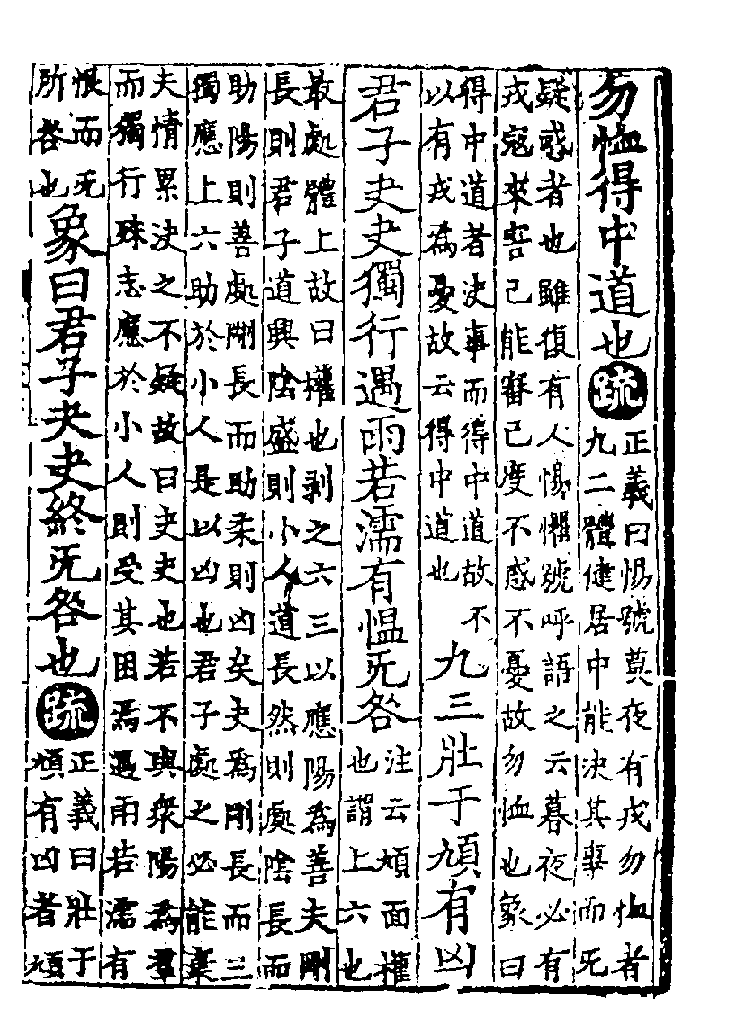 勿恤得中道也疏正義曰惕號莫夜有戎勿恤者
九二體健居中能決其事而无
疑惑者也雖復有人惕懼號呼語之云暮夜必有
戎寇來害己能審己度不惑不憂故勿恤也象曰
得中道者決事而得中道故不
以有戎為憂故云得中道也九三壯于頄有凶
君子夬夬獨行遇雨若濡有慍无咎注云頄面權
也謂上六也
最處體上故曰權也剥之六三以應陽為善夫剛
長則君子道興陰盛則小人道長然則處陰長而
助陽則善處剛長而助柔則凶矣夬為剛長而三
獨應上六助於小人是以凶也君子處之必能棄
夫情累決之不疑故曰夬夬也若不與衆陽為羣
而獨行殊志應於小人則受其困焉遇雨若濡有
恨而无
所咎也象曰君子夬夬終无咎也疏正義曰壯于
頄有凶者頄